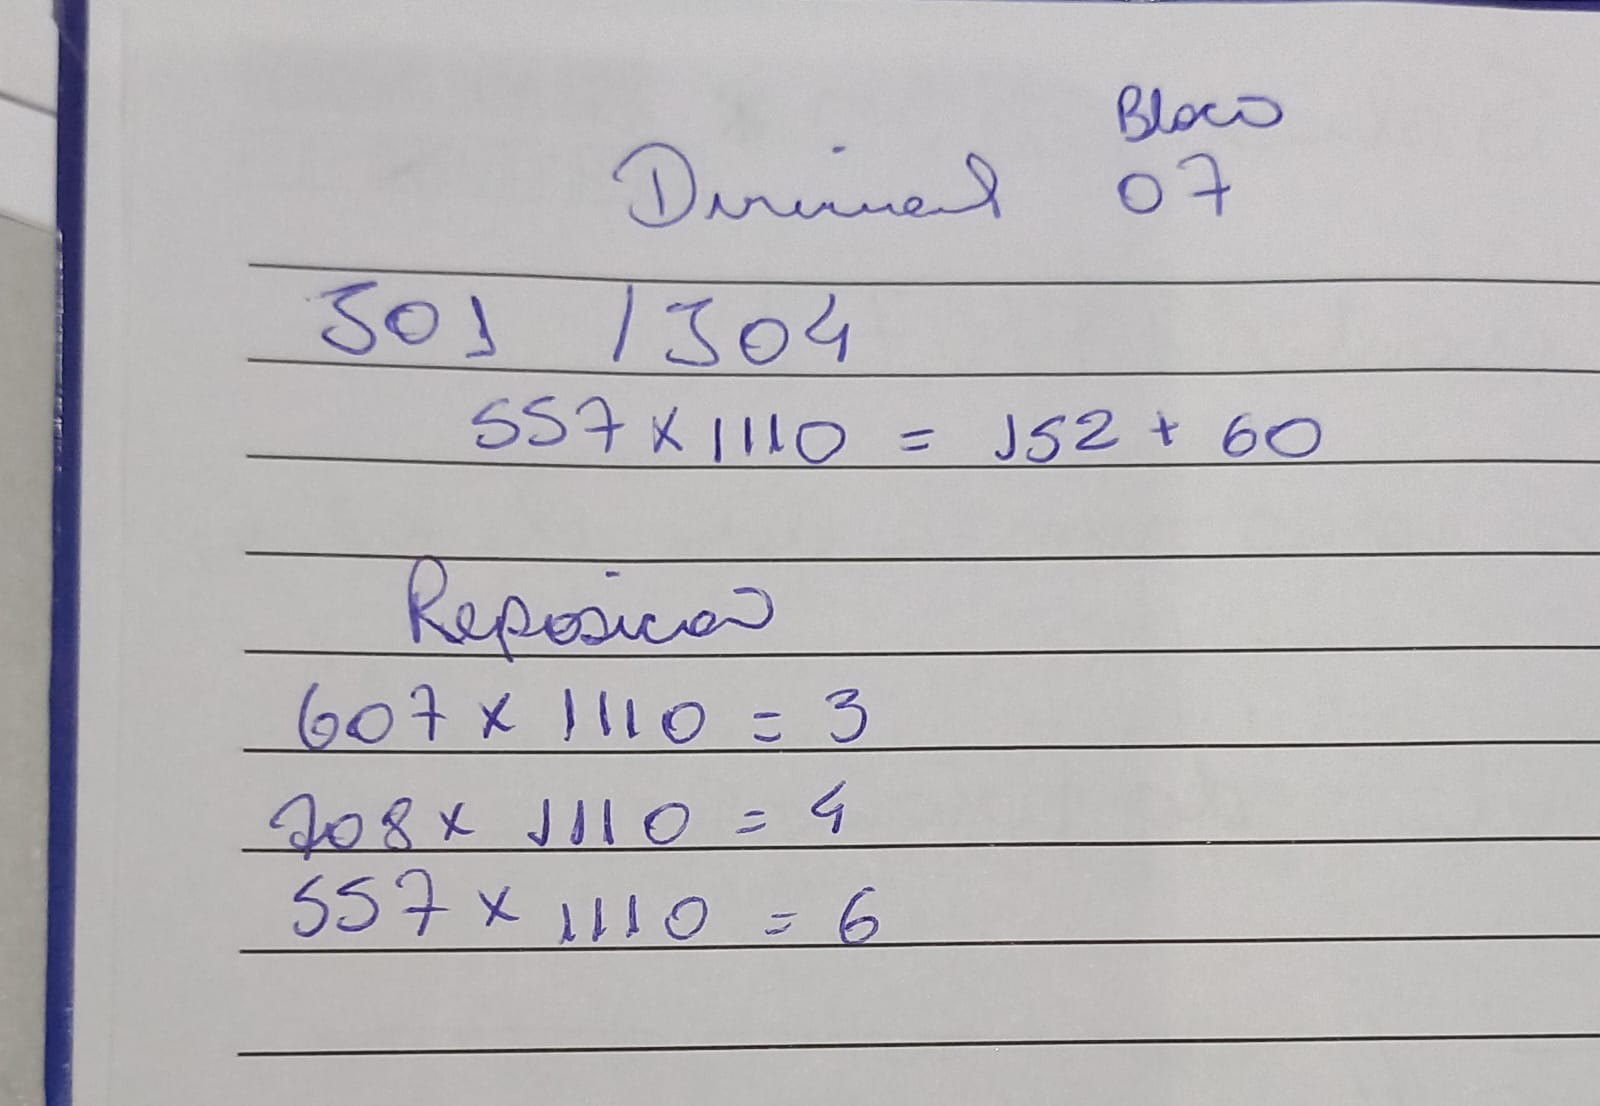 Bloco
07
301 / 304
557 x 1110 = 152 + 60
Reposicao
607 x 1110 = 3
708 x 1110 = 4
557 x 1110 = 6